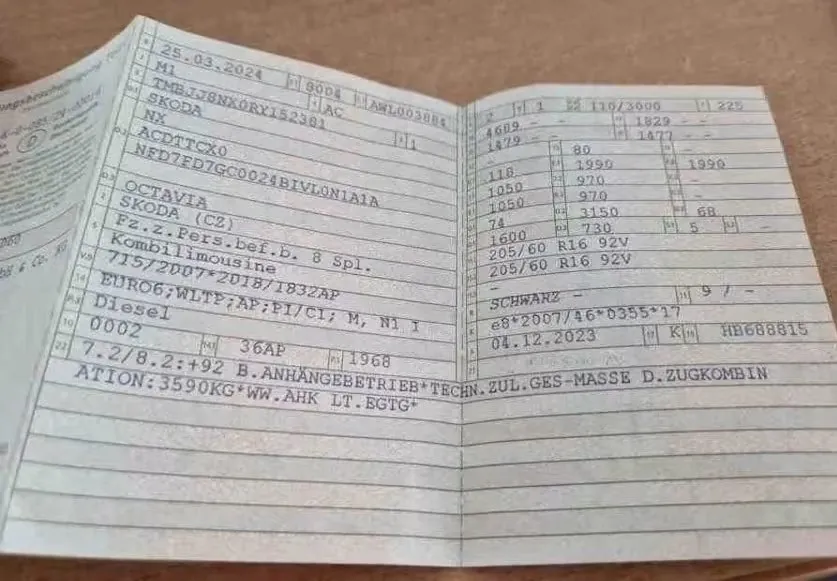 25.03.2024 8004 AWL003884
M1 AC
TMBJJ8NX0RY152381 1
SKODA
NX
ACDTTCX0
NFD7FD7GC0024BIVL0N1A1A
OCTAVIA
SKODA (CZ)
Fz.z.Pers.bef.b. 8 Spl.
Kombilimousine
715/2007*2018/1832AP
EURO6;WLTP;AP;PI/CI; M, N1 I
Diesel
0002 36AP 1968
7.2/8.2:+92 B.ANHÄNGEBETRIEB*TECHN.ZUL.GES-MASSE D.ZUGKOMBIN
ATION:3590KG*WW.AHK LT.EGTG*
2 1 110/3000 225
4689 - - 1829 - -
1479 - - 1477 - -
- 80 -
118 1990 1990
1050 970 -
1050 970 -
74 3150 68
1600 730 5 -
205/60 R16 92V
205/60 R16 92V
-
SCHWARZ - 9 / -
e8*2007/46*0355*17
04.12.2023 K HB688815